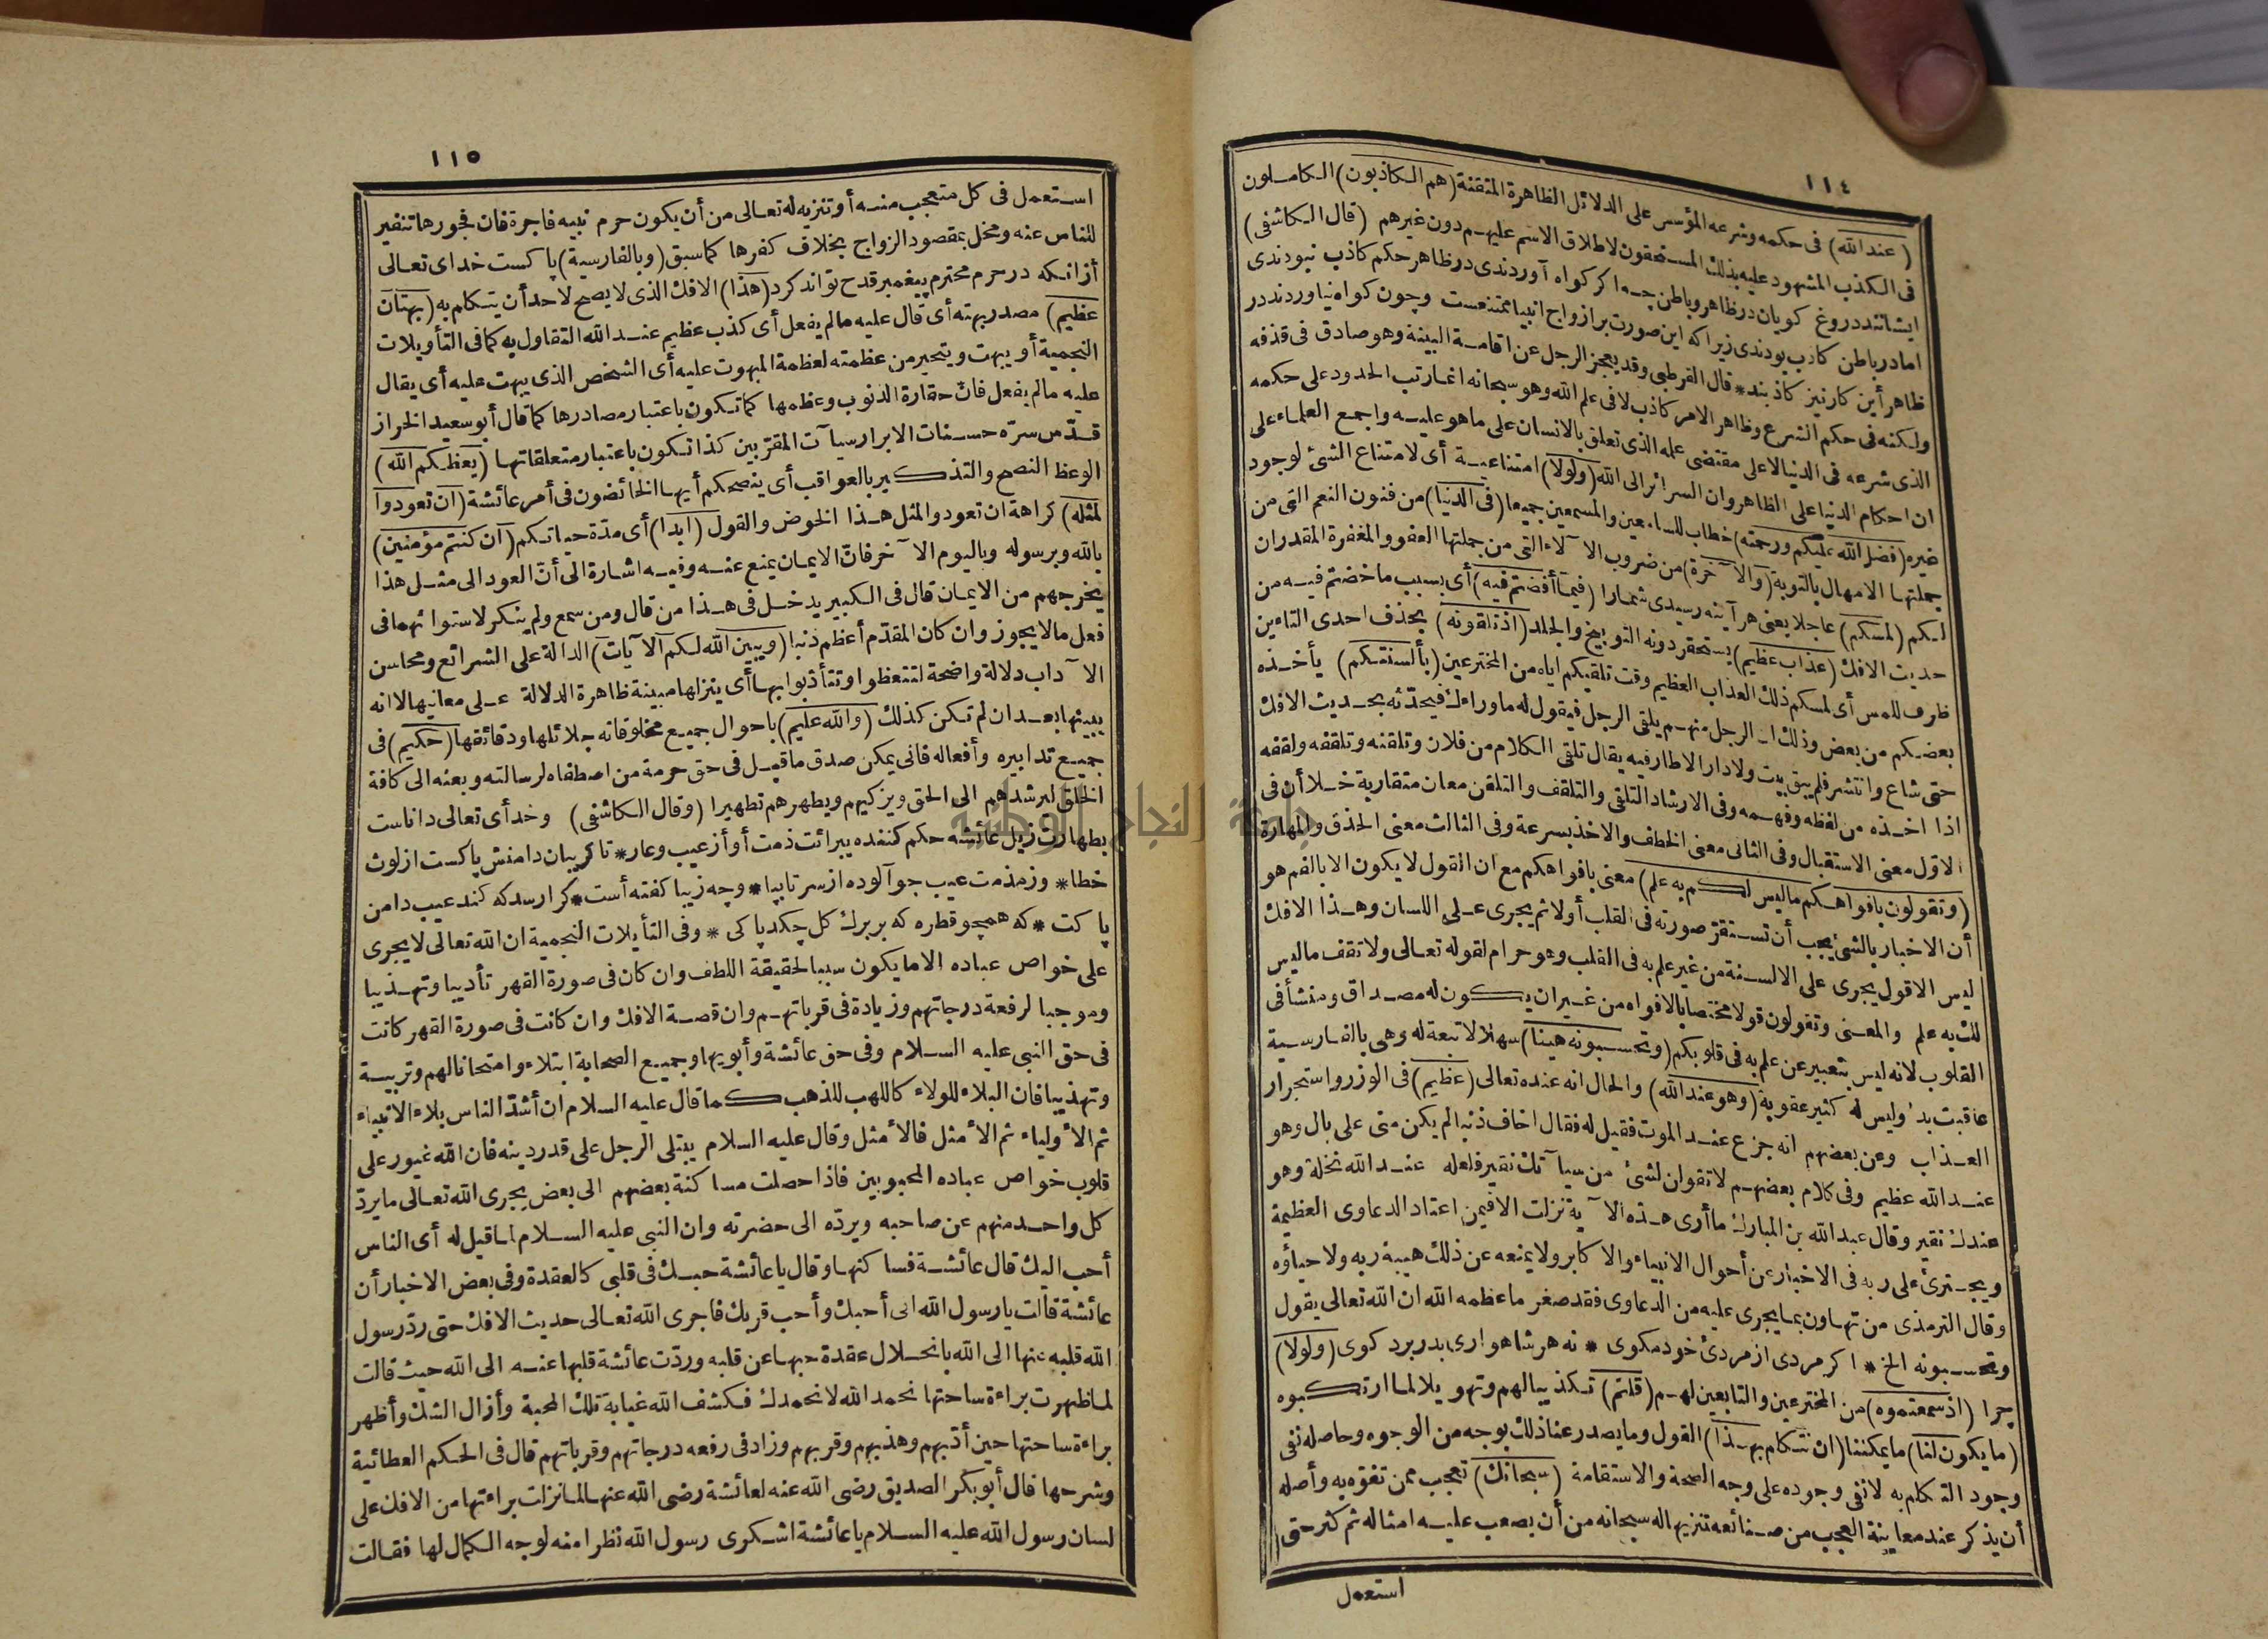 ١١٤
(عند الله) فى حكمه وشرعه المؤسس على الدلائل الظاهرة المتقنة (هم الكاذبون) الكاملون
فى الكذب المشهود عليه بذلك المستحقون لاطلاق الاسم عليهم دون غيرهم (قال الكاشفى)
ايشانند دروغ كويان در ظاهر وباطن چه اكر كواه آوردندى در ظاهر حكم كاذب نبودندى
اما در باطن كاذب بودندى زيرا كه اين صورت بر ازواج انبيا ممتنعست وچون كواه نياوردند در
ظاهر أين كار نيز كاذبند * قال القرطبى وقد يعجز الرجل عن اقامة البينة وهو صادق فى قذفه
ولكنه فى حكم الشرع وظاهر الامر كاذب لا فى علم الله وهو سبحانه انما رتب الحدود على حكمه
الذى شرعه فى الدنيا لا على مقتضى علمه الذى تعلق بالانسان على ما هو عليه واجمع العلماء على
ان احكام الدنيا على الظاهر وان السرائر الى الله (ولولا) امتناعية أى لامتناع الشئ لوجود
غيره (فضل الله عليكم ورحمته) خطاب للسامعين والمسمعين جميعا (فى الدنيا) من فنون النعم التى من
جملتها الامهال بالتوبة (والآخرة) من ضروب الآلاء التى من جملتها العفو والمغفرة المقدران
لكم (لمسكم) عاجلا يعنى هر آينه رسيدى شمارا (فيما أفضتم فيه) أى بسبب ما خضتم فيه من
حديث الافك (عذاب عظيم) يستحقر دونه التوبيخ والجلد (اذ تلقونه) بحذف احدى التاءين
ظرف للمس أى لمسكم ذلك العذاب العظيم وقت تلقيكم اياه من المخترعين (بألسنتكم) يأخذه
بعضكم من بعض وذلك ان الرجل منهم يلقى الرجل فيقول له ما وراءك فيحدثه بحديث الافك
حتى شاع وانتشر فلم يبق بيت ولا دار الا طار فيه يقال تلقى الكلام من فلان وتلقنه وتلقفه ولقفه
اذا اخذه من لفظه وفهمه وفى الارشاد التلقى والتلقف والتلقن معان متقاربة خلا أن فى
الاول معنى الاستقبال وفى الثانى معنى الخطف والاخذ بسرعة وفى الثالث معنى الحذق والمهارة
(وتقولون بافواهكم ما ليس لكم به علم) معنى بافواهكم مع ان القول لا يكون الا بالفم هو
أن الاخبار بالشئ يجب أن تستقرّ صورته فى القلب أولا ثم يجرى على اللسان وهذا الافك
ليس الا قول يجرى على الالسنة من غير علم به فى القلب وهو حرام لقوله تعالى ولا تقف ما ليس
لك به علم والمعنى وتقولون قولا مختصا بالافواه من غير ان يكون له مصداق ومنشأ فى
القلوب لانه ليس بتعبير عن علم به فى قلوبكم (وتحسبونه هينا) سهلا لا تبعة له وهى بالفارسية
عاقبت بد * وليس له كثير عقوبة (وهو عند الله) والحال انه عنده تعالى (عظيم) فى الوزر واستجرار
العذاب وعن بعضهم انه جزع عند الموت فقيل له فقال اخاف ذنبا لم يكن منى على بال وهو
عند الله عظيم وفى كلام بعضهم لا تقولن لشئ من سيآتك نقير فلعله عند الله نخلة وهو
عندك نقير وقال عبد الله بن المبارك ما أرى هذه الآية نزلت الا فيمن اعتاد الدعاوى العظيمة
ويجترئ على ربه فى الاخبار عن أحوال الانبياء والاكابر ولا يمنعه عن ذلك هيبة ربه ولا حياؤه
وقال الترمذى من تهاون بما يجرى عليه من الدعاوى فقد صغر ما عظمه الله ان الله تعالى يقول
وتحسبونه الخ * اكر مردى از مردئ خود مكوى * نه هر شاهوارى بدر برد كوى (ولولا)
چرا (اذ سمعتموه) من المخترعين والتابعين لهم (قلتم) تكذيبا لهم وتهويلا لما ارتكبوه
(ما يكون لنا) ما يمكننا (ان نتكلم بهذا) القول وما يصدر عنا ذلك بوجه من الوجوه وحاصله نفى
وجود التكلم به لا نفى وجوده على وجه الصحة والاستقامة (سبحانك) تعجب ممن تفوّه به وأصله
أن يذكر عند معاينة العجب من صنائعه تنزيها له سبحانه من أن يصعب عليه امثاله ثم كثر حتى
استعمل
١١٥
استعمل فى كل متعجب منه أو تنزيه له تعالى من أن يكون حرم نبيه فاجرة فان فجورها تنفير
للناس عنه ومخل بمقصود الزواج بخلاف كفرها كما سبق (وبالفارسية) پاكست خداى تعالى
أز انكه در حرم محترم پيغمبر قدح تواند كرد (هذا) الافك الذى لا يصح لاحد أن يتكلم به (بهتان
عظيم) مصدر بهته أى قال عليه ما لم يفعل أى كذب عظيم عند الله التقاول به كما فى التأويلات
النجمية أو يبهت ويتحير من عظمته لعظمة المبهوت عليه أى الشخص الذى يبهت عليه أى يقال
عليه ما لم يفعل فان حقارة الذنوب وعظمها كما تكون باعتبار مصادرها كما قال أبو سعيد الخراز
قدّس سرّه حسنات الابرار سيآت المقرّبين كذا تكون باعتبار متعلقاتها (يعظكم الله)
الوعظ النصح والتذكير بالعواقب أى ينصحكم أيها الخائضون فى أمر عائشة (ان تعودوا
لمثله) كراهة ان تعودوا لمثل هذا الخوض والقول (ابدا) أى مدّة حياتكم (ان كنتم مؤمنين)
بالله وبرسوله وباليوم الآخر فانّ الايمان يمنع عنه وفيه اشارة الى أنّ العود الى مثل هذا
يخرجهم من الايمان قال فى الكبير يدخل فى هذا من قال ومن سمع ولم ينكر لاستوائهما فى
فعل ما لا يجوز وان كان المقدّم أعظم ذنبا (ويبين الله لكم الآيات) الدالة على الشرائع ومحاسن
الآداب دلالة واضحة لتتعظوا وتتأدّبوا بها أى ينزلها مبينة ظاهرة الدلالة على معانيها لا انه
يبينها بعد ان لم تكن كذلك (والله عليم) باحوال جميع مخلوقاته جلائلها ودقائقها (حكيم) فى
جميع تدابيره وأفعاله فانى يمكن صدق ما قيل فى حق حرمة من اصطفاه لرسالته وبعثه الى كافة
الخلق ليرشدهم الى الحق ويزكيهم ويطهرهم تطهيرا (وقال الكاشفى) وخداى تعالى داناست
بطهارت ذيل عائشه حكم كننده ببرائت ذمت أو أز عيب وعار * تا كريبان دامنش پاكست از لوث
خطا * وز مذمت عيب جو آلوده از سر تا بپا * وچه زيبا كفته أست * كرا رسد كه كند عيب دامن
پاكت * كه همچو قطره كه بر برك كل چكد پاكى * وفى التأيلات النجمية ان الله تعالى لا يجرى
على خواص عباده الا ما يكون سببا لحقيقة اللطف وان كان فى صورة القهر تأديبا وتهذيبا
وموجبا لرفعة درجاتهم وزيادة فى قرباتهم وان قصة الافك وان كانت فى صورة القهر كانت
فى حق النبى عليه السلام وفى حق عائشة وأبويها وجميع الصحابة ابتلاء وامتحانا لهم وتربية
وتهذيبا فان البلاء للولاء كاللهب للذهب كما قال عليه السلام ان أشدّ الناس بلاء الانبياء
ثم الأولياء ثم الأمثل فالأمثل وقال عليه السلام يبتلى الرجل على قدر دينه فان الله غيور على
قلوب خواص عباده المحبوبين فاذا حصلت مساكنة بعضهم الى بعض يجرى الله تعالى ما يردّ
كل واحد منهم عن صاحبه ويردّه الى حضرته وان النبى عليه السلام لما قيل له أى الناس
أحب اليك قال عائشة فساكنها وقال يا عائشة حبك فى قلبى كالعقدة وفى بعض الاخبار أن
عائشة قالت يا رسول الله انى أحبك وأحب قربك فاجرى الله تعالى حديث الافك حتى ردّ رسول
الله قلبه عنها الى الله بانحلال عقدة حبها عن قلبه وردّت عائشة قلبها عنه الى الله حيث قالت
لما ظهرت براءة ساحتها نحمد الله لا نحمدك فكشف الله غيابة تلك المحبة وأزال الشك وأظهر
براءة ساحتها حين أدّبهم وهذبهم وقربهم وزاد فى رفعه درجاتهم وقرباتهم قال فى الحكم العطائية
وشرحها قال أبو بكر الصديق رضى الله عنه لعائشة رضى الله عنها لما نزلت براءتها من الافك على
لسان رسول الله عليه السلام يا عائشة اشكرى رسول الله نظرا منه لوجه الكمال لها فقالت